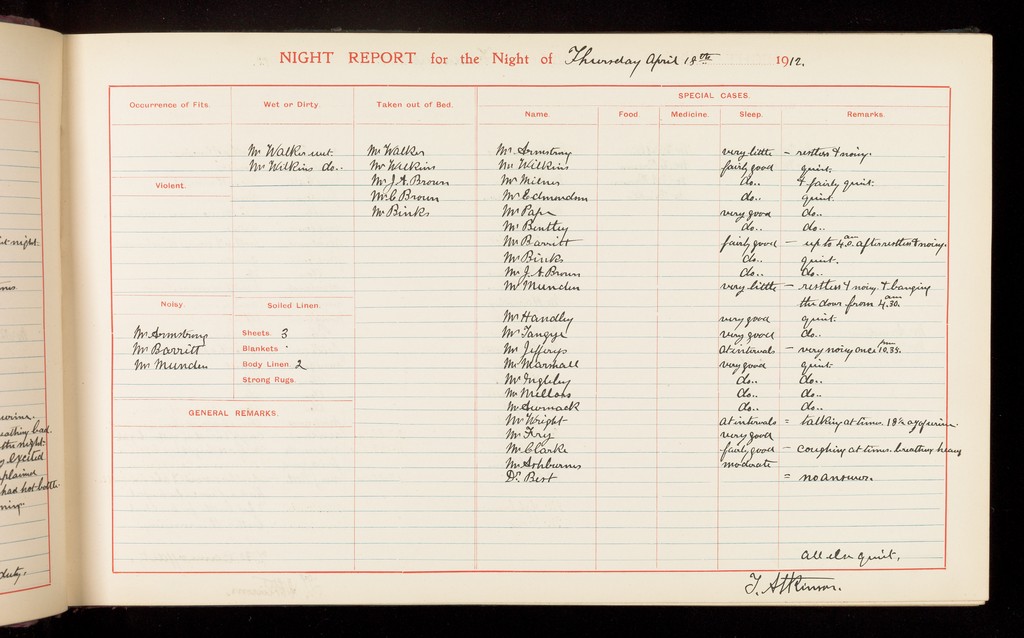 NIGHT REPORT for the Night of Thursday April 18th 1912.
Occurrence of Fits.
Wet or Dirty.
Taken out of Bed.
SPECIAL CASES.
Name
Food
Medicine.
Sleep.
Remarks.
Mr Walker wet
Mr Wilkins do..
Mr Walker
Mr Wilkins
Mr J. A. Brown
Mr C Brown
Mr Binks
Violent.
Noisy.
Mr Armstrong
Mr Barritt
Mr Munden
Soiled Linen.
Sheets. 3
Blankets
Body Linen. 2
Strong Rugs.
GENERAL REMARKS.
Mr Armstrong very little – restless & noisy.
Mr Wilkins fairly good quiet.
Mr Milner do.. & fairly quiet.
Mr Edmondson do.. quiet.
Mr Pape very good do..
Mr Bentley do.. do..
Mr Barritt fairly good – up to 4.0 am after restless & noisy.
Mr Binks do.. quiet.
Mr J. A. Brown do.. do..
Mr Munden very little – restless & noisy & banging
the door from 4.30 am.
Mr Handley very good quiet.
Mr Tangye very good do..
Mr Jefferys at intervals – very noisy once 10.35 pm.
Mr Marshall very good quiet
Mr Ingleby do.. do..
Mr Mellors do.. do..
Mr do.. do..
Mr Wright at intervals = talking at times. 18 oz of urine
Mr Fry very good
Mr Clarke fairly good – coughing at times. breathing heavy
Mr Ashburner moderate
Dr Best = no answer.
All else quiet.
T. Atkinson.
st night.
urine.
eathing bad.
the night.
excited
plained
had hot bottle
duty.